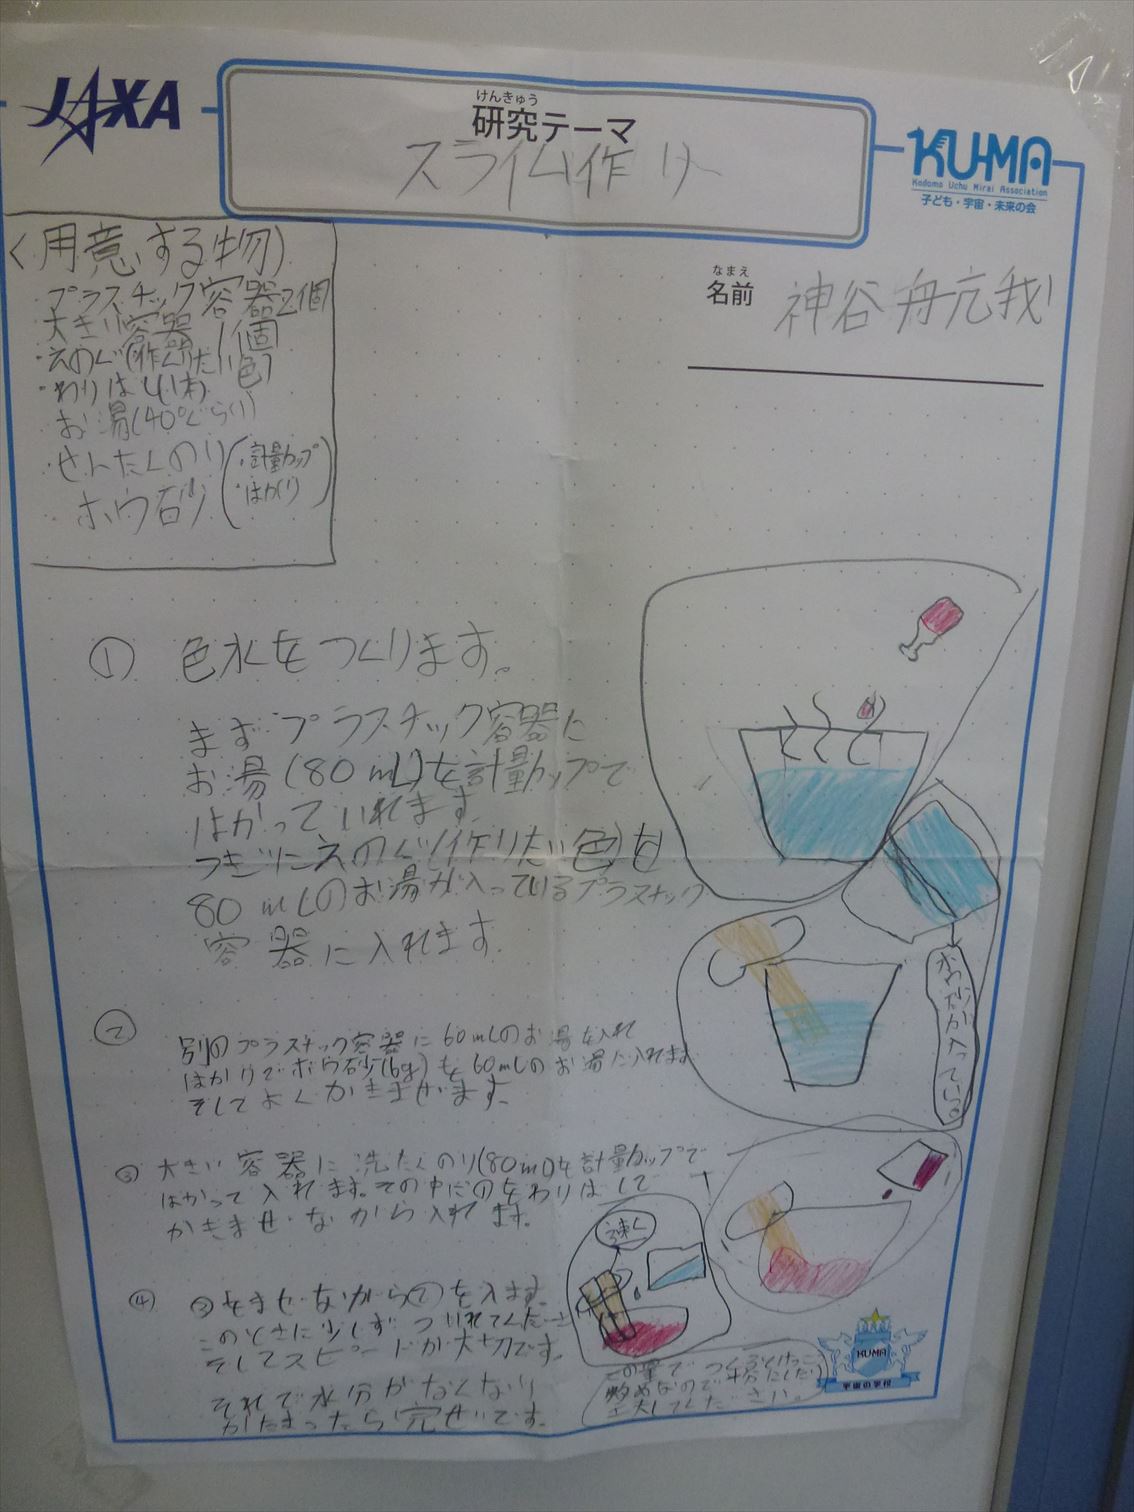 JAXA
けんきゅう
研究テーマ
スライム作り
KU-MA
Kodomo Uchu Mirai Association
子ども・宇宙・未来の会
なまえ
名前
神谷
<用意する物>
プラスチック容器2個
大きい容器 1個
・えのぐ(作りたい色)
・わりばし
お湯(40°ぐらい)
・せんたくのり
・ホウ砂
(・計量カップ
・はかり)
① 色水をつくります。
まずプラスチック容器に
お湯(80mL)を計量カップで
はかっていれます
つぎにえのぐ(作りたい色)を
80mLのお湯が入っているプラスチック
容器に入れます
② 別のプラスチック容器に60mLのお湯を入れ
はかりでホウ砂(6g)を60mLのお湯に入れます
そしてよくかきまぜます。
③ 大きい容器に洗たくのり(80ml)を計量カップで
はかって入れます。その中に①をわりばしで
かきまぜながら入れます。
④ ③をまぜながら②を入ます。
このときに少しずついれてください
そしてスピードが大切です。
それで水分がなくなり
かたまったら完せいです。
速く
この量でつくるとけっこう
KUMA
宇宙の学校